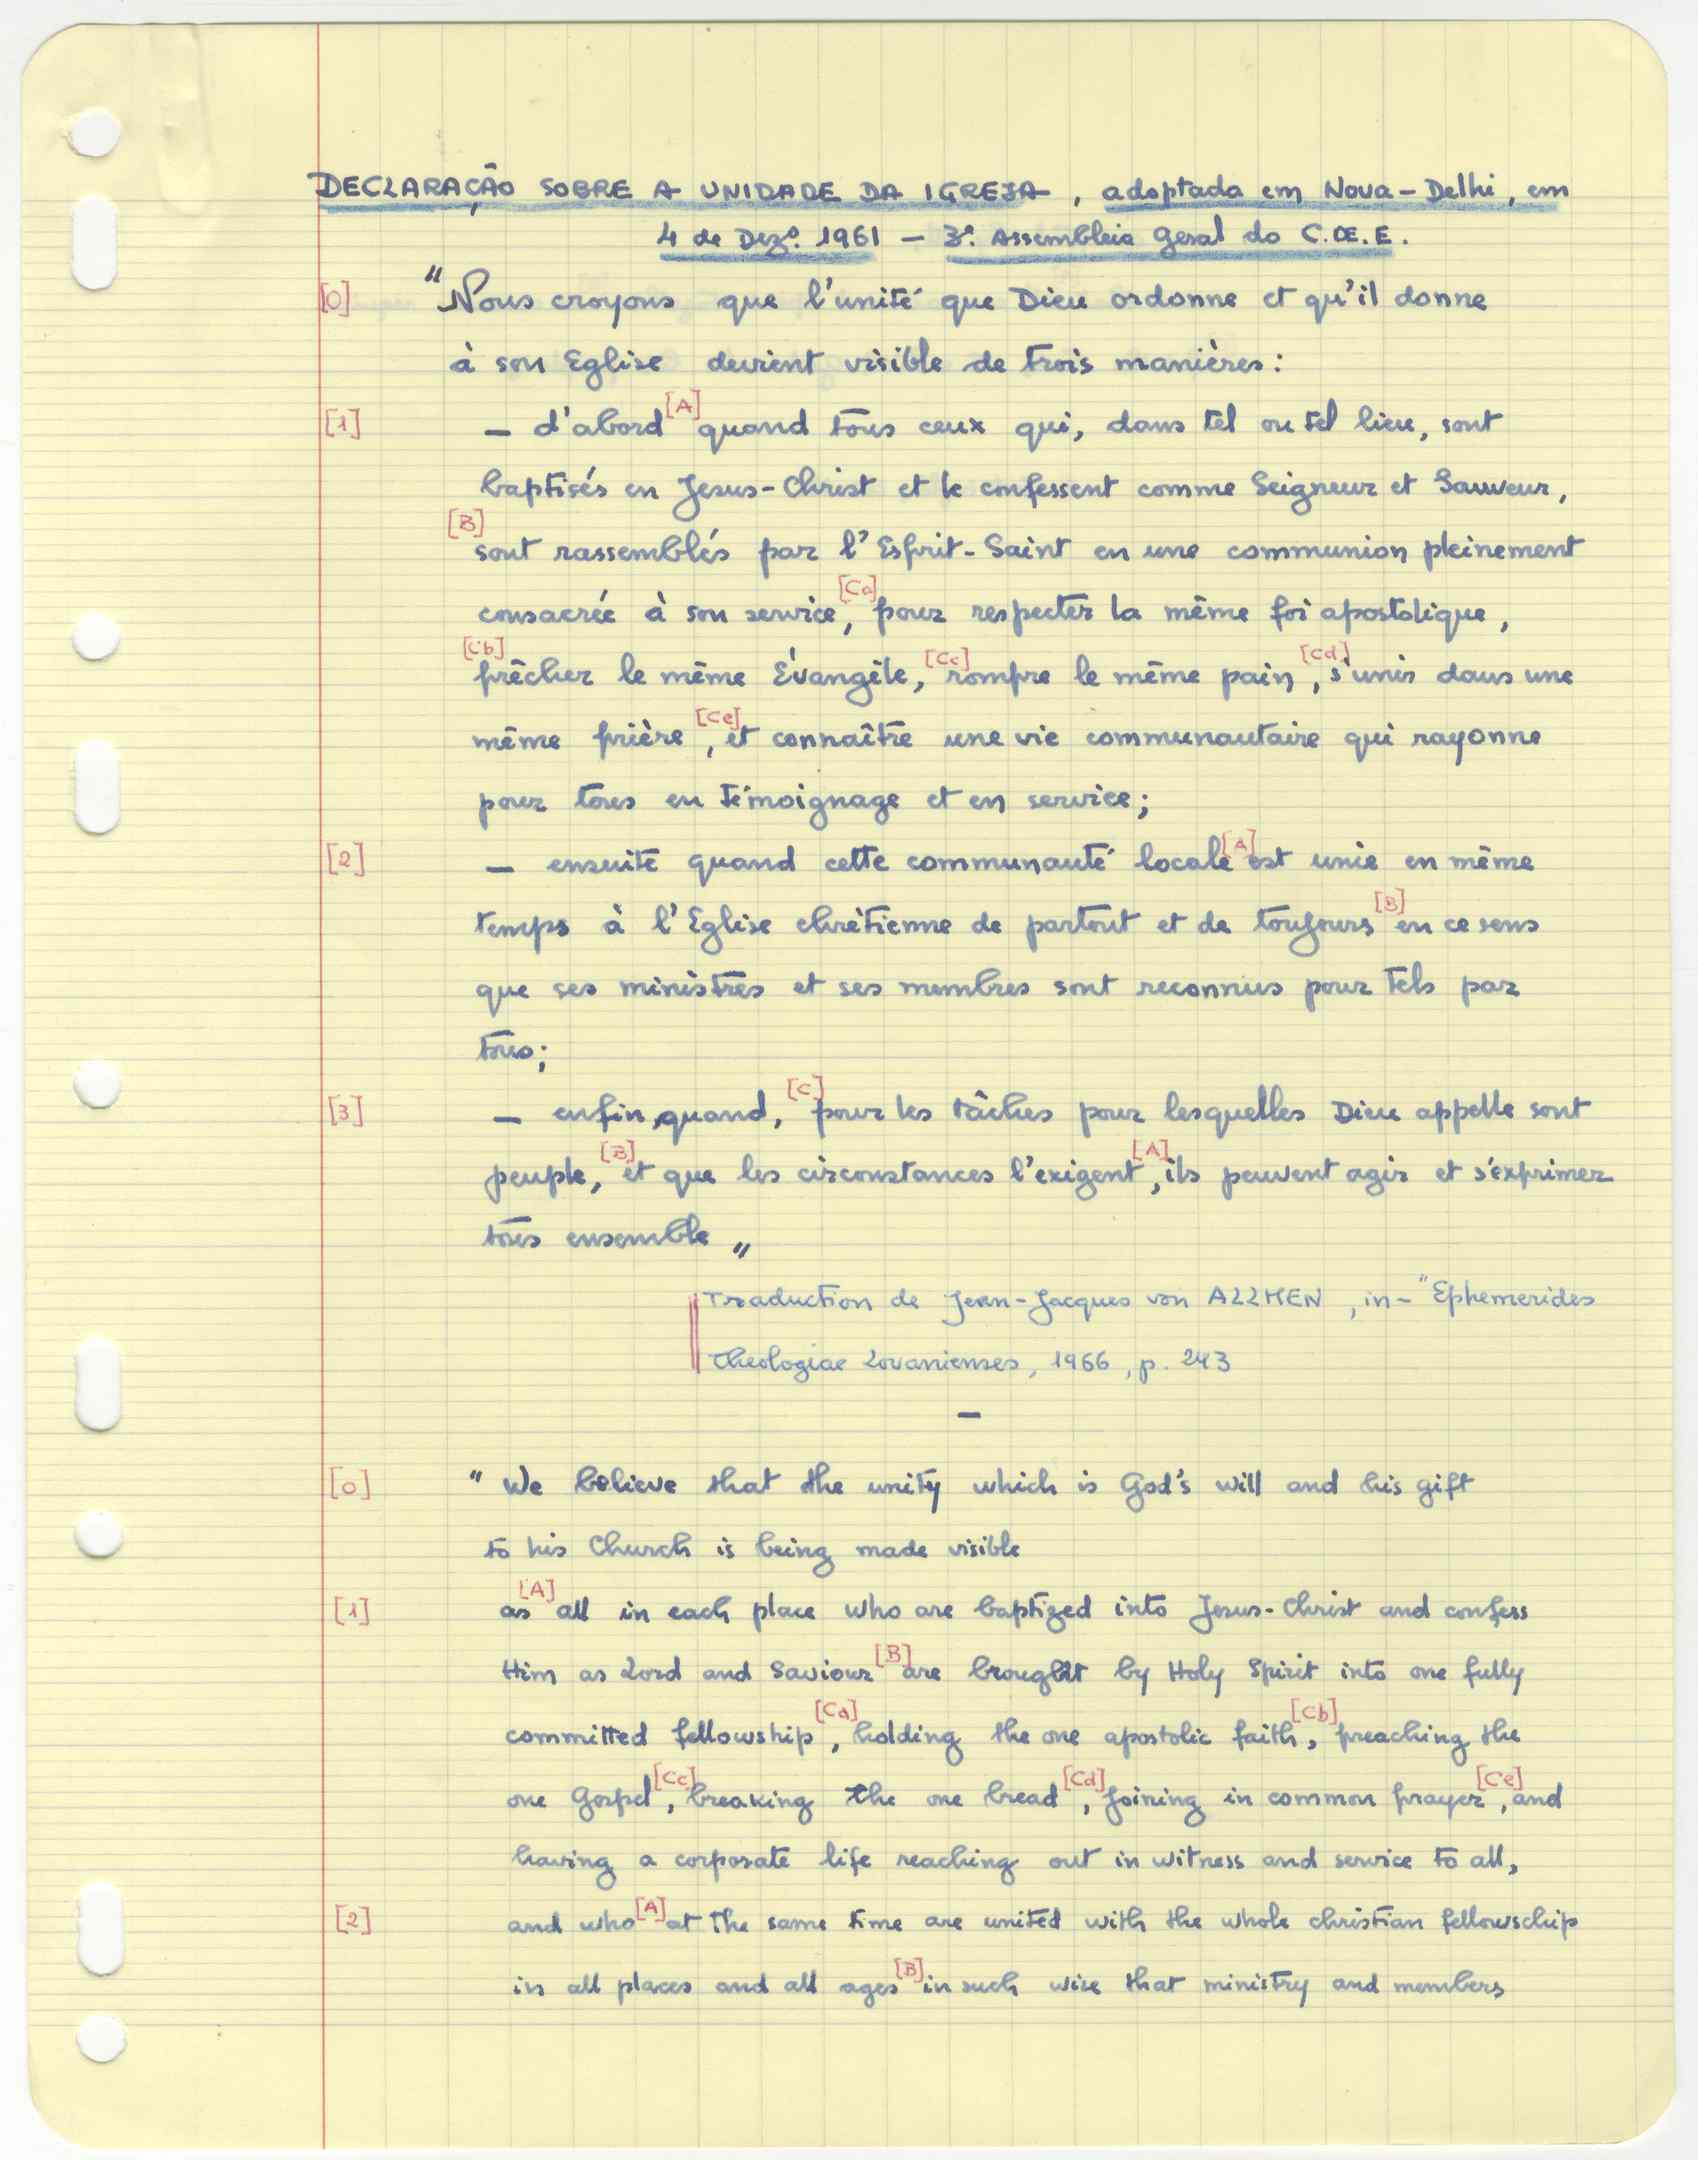 DECLARAÇÃO SOBRE A UNIDADE DA IGREJA, adoptada em Nova-Delhi, em
4 de Dezº. 1961 — 3ª. Assembleia Geral do C.OE.E.
[0] "Nous croyons que l'unité que Dieu ordonne et qu'il donne
à son Eglise devient visible de trois manières:
[1] — d'abord [A] quand tous ceux qui, dans tel ou tel lieu, sont
baptisés en Jesus-Christ et le confessent comme Seigneur et Sauveur,
[B] sont rassemblés par l'Esprit-Saint en une communion pleinement
consacrée à son service, [Ca] pour respecter la même foi apostolique,
[Cb] prêcher le même Évangile, [Cc] rompre le même pain, [Cd] s'unir dans une
même prière, [Ce] et connaître une vie communautaire qui rayonne
pour tous en témoignage et en service;
[2] — ensuite quand cette communauté locale [A] est unie en même
temps à l'Eglise chrétienne de partout et de toujours [B] en ce sens
que ses ministres et ses membres sont reconnus pour tels par
tous;
[3] — enfin, quand, [C] pour les tâches pour lesquelles Dieu appelle sont
peuple, [B] et que les circonstances l'exigent, [A] ils peuvent agir et s'exprimer
tous ensemble "
Traduction de Jean-Jacques von ALLMEN, in- "Ephemerides
Theologiae Lovanienses, 1966, p. 243
—
[0] "We believe that the unity which is God's will and his gift
to his Church is being made visible
[1] as [A] all in each place who are baptized into Jesus-Christ and confess
Him as Lord and Saviour [B] are brought by Holy Spirit into one fully
committed fellowship, [Ca] holding the one apostolic faith, [Cb] preaching the
one Gospel, [Cc] breaking the one bread, [Cd] joining in common prayer, [Ce] and
having a corporate life reaching out in witness and service to all,
[2] and who [A] at the same time are united with the whole christian fellowschip
in all places and all ages [B] in such wise that ministry and members